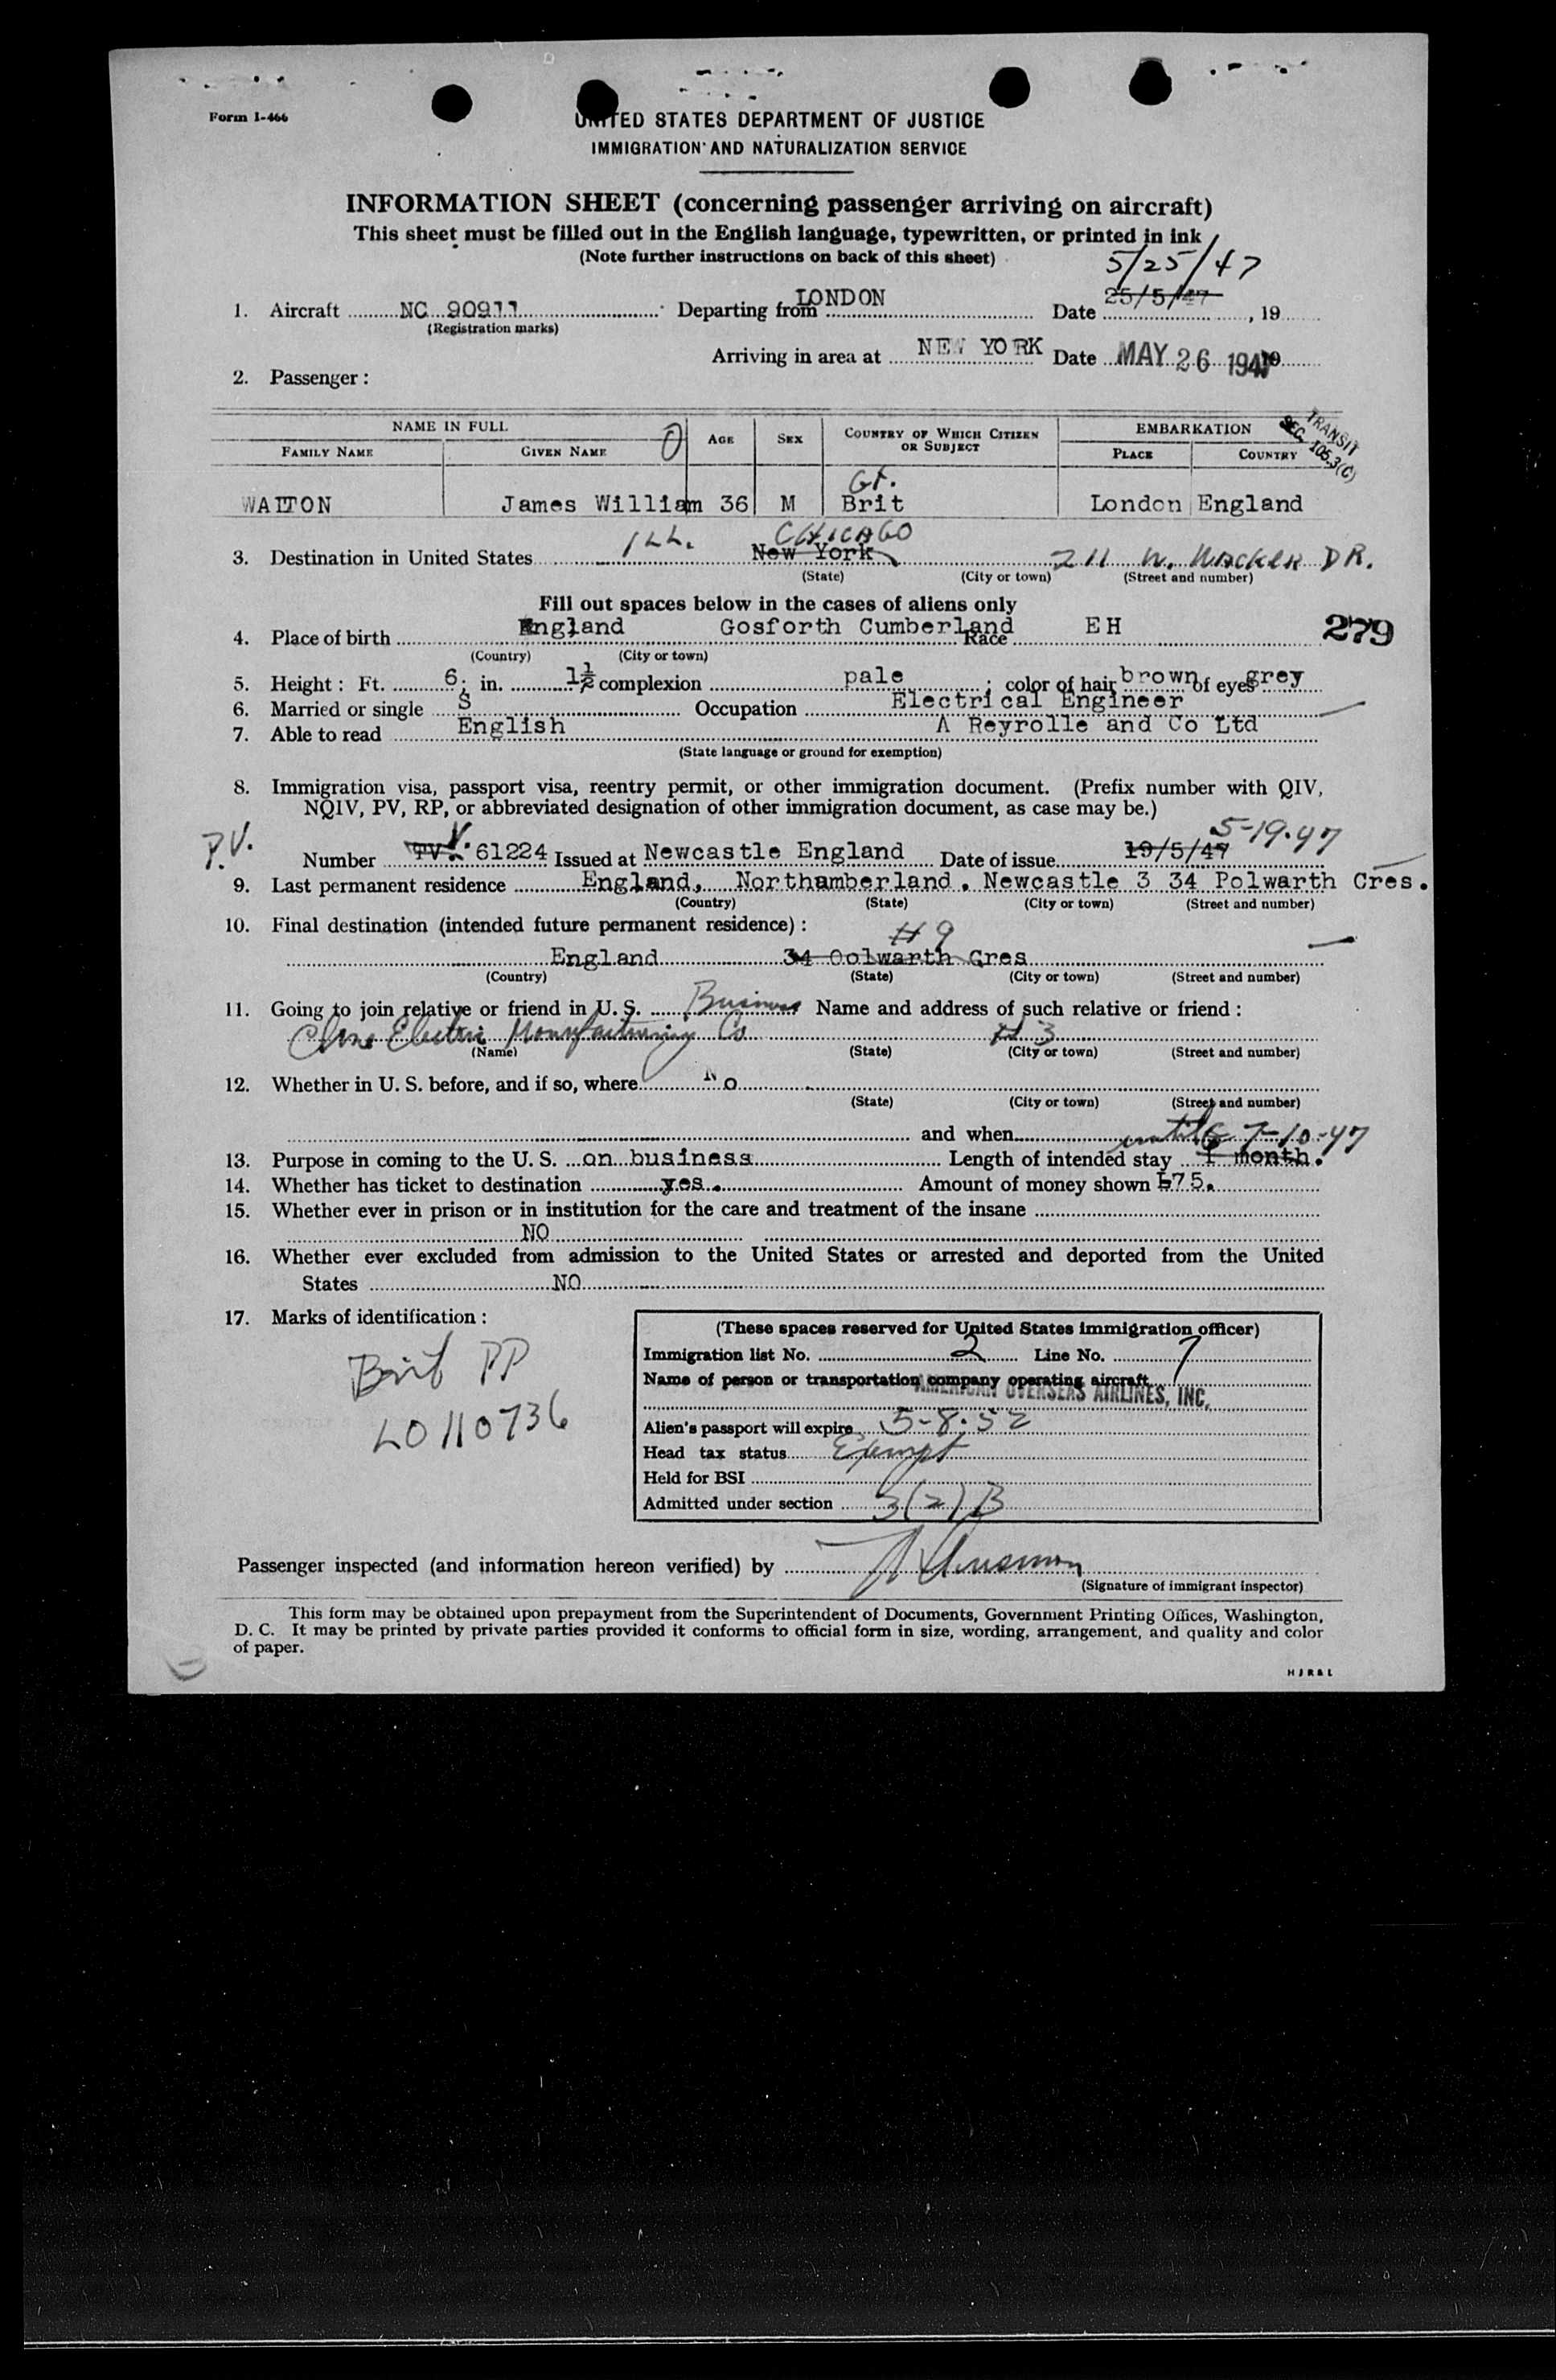 Form I-466
UNITED STATES DEPARTMENT OF JUSTICE
IMMIGRATION AND NATURALIZATION SERVICE
INFORMATION SHEET (concerning passenger arriving on aircraft)
This sheet must be filled out in the English language, typewritten, or printed in ink
(Note further instructions on back of this sheet)
5/25/47
1. Aircraft NC 90911 Departing from LONDON Date 25/5/47, 19
(Registration marks)
Arriving in area at NEW YORK Date MAY 26 1947 19
2. Passenger:
NAME IN FULL
FAMILY NAME GIVEN NAME AGE SEX COUNTRY OF WHICH CITIZEN OR SUBJECT EMBARKATION PLACE COUNTRY
TRANSIT SEC. 105.3(C)
Gt.
WALTON James William 36 M Brit London England
ILL. CHICAGO
3. Destination in United States New York 211 W. WACKER DR.
(State) (City or town) (Street and number)
Fill out spaces below in the cases of aliens only
4. Place of birth England Gosforth Cumberland Race EH 279
(Country) (City or town)
5. Height: Ft. 6; in. 1½ complexion pale; color of hair brown of eyes grey
6. Married or single S Occupation Electrical Engineer
7. Able to read English A Reyrolle and Co Ltd
(State language or ground for exemption)
8. Immigration visa, passport visa, reentry permit, or other immigration document. (Prefix number with QIV,
NQIV, PV, RP, or abbreviated designation of other immigration document, as case may be.)
P.V. V. 5-19-47
Number TV. 61224 Issued at Newcastle England Date of issue 19/5/47
9. Last permanent residence England, Northumberland. Newcastle 3 34 Polwarth Cres.
(Country) (State) (City or town) (Street and number)
10. Final destination (intended future permanent residence):
# 9
England 34 Oolwarth Cres
(Country) (State) (City or town) (Street and number)
11. Going to join relative or friend in U. S. Business Name and address of such relative or friend:
Cline Electric Manufacturing Co # 3
(Name) (State) (City or town) (Street and number)
12. Whether in U. S. before, and if so, where No
(State) (City or town) (Street and number)
and when
until 7-10-47
13. Purpose in coming to the U. S. on business Length of intended stay 1 month.
14. Whether has ticket to destination yes. Amount of money shown £75.
15. Whether ever in prison or in institution for the care and treatment of the insane
NO
16. Whether ever excluded from admission to the United States or arrested and deported from the United
States NO
17. Marks of identification:
Brit PP
LO110736
(These spaces reserved for United States immigration officer)
Immigration list No. 2 Line No. 7
Name of person or transportation company operating aircraft
AMERICAN OVERSEAS AIRLINES, INC.
Alien's passport will expire 5-8-52
Head tax status Exempt
Held for BSI
Admitted under section 3(2)B
Passenger inspected (and information hereon verified) by
(Signature of immigrant inspector)
This form may be obtained upon prepayment from the Superintendent of Documents, Government Printing Offices, Washington,
D. C. It may be printed by private parties provided it conforms to official form in size, wording, arrangement, and quality and color
of paper.
HJR&L